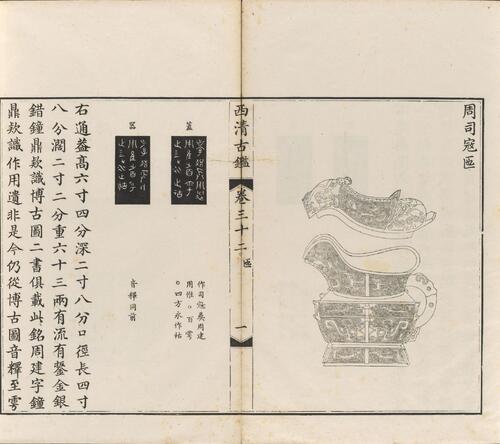 周司寇匜
西清古鑑 卷三十二 匜 一
蓋
作司寇彝周建
用惟○百雩
○四方永作祐
器
音釋同前
右通葢高六寸四分深二寸八分口徑長四寸
八分濶二寸二分重六十三兩有流有鋬金銀
錯鐘鼎欵識博古圖二書俱載此銘周建字鐘
鼎欵識作用遺非是今仍從博古圖音釋至雩